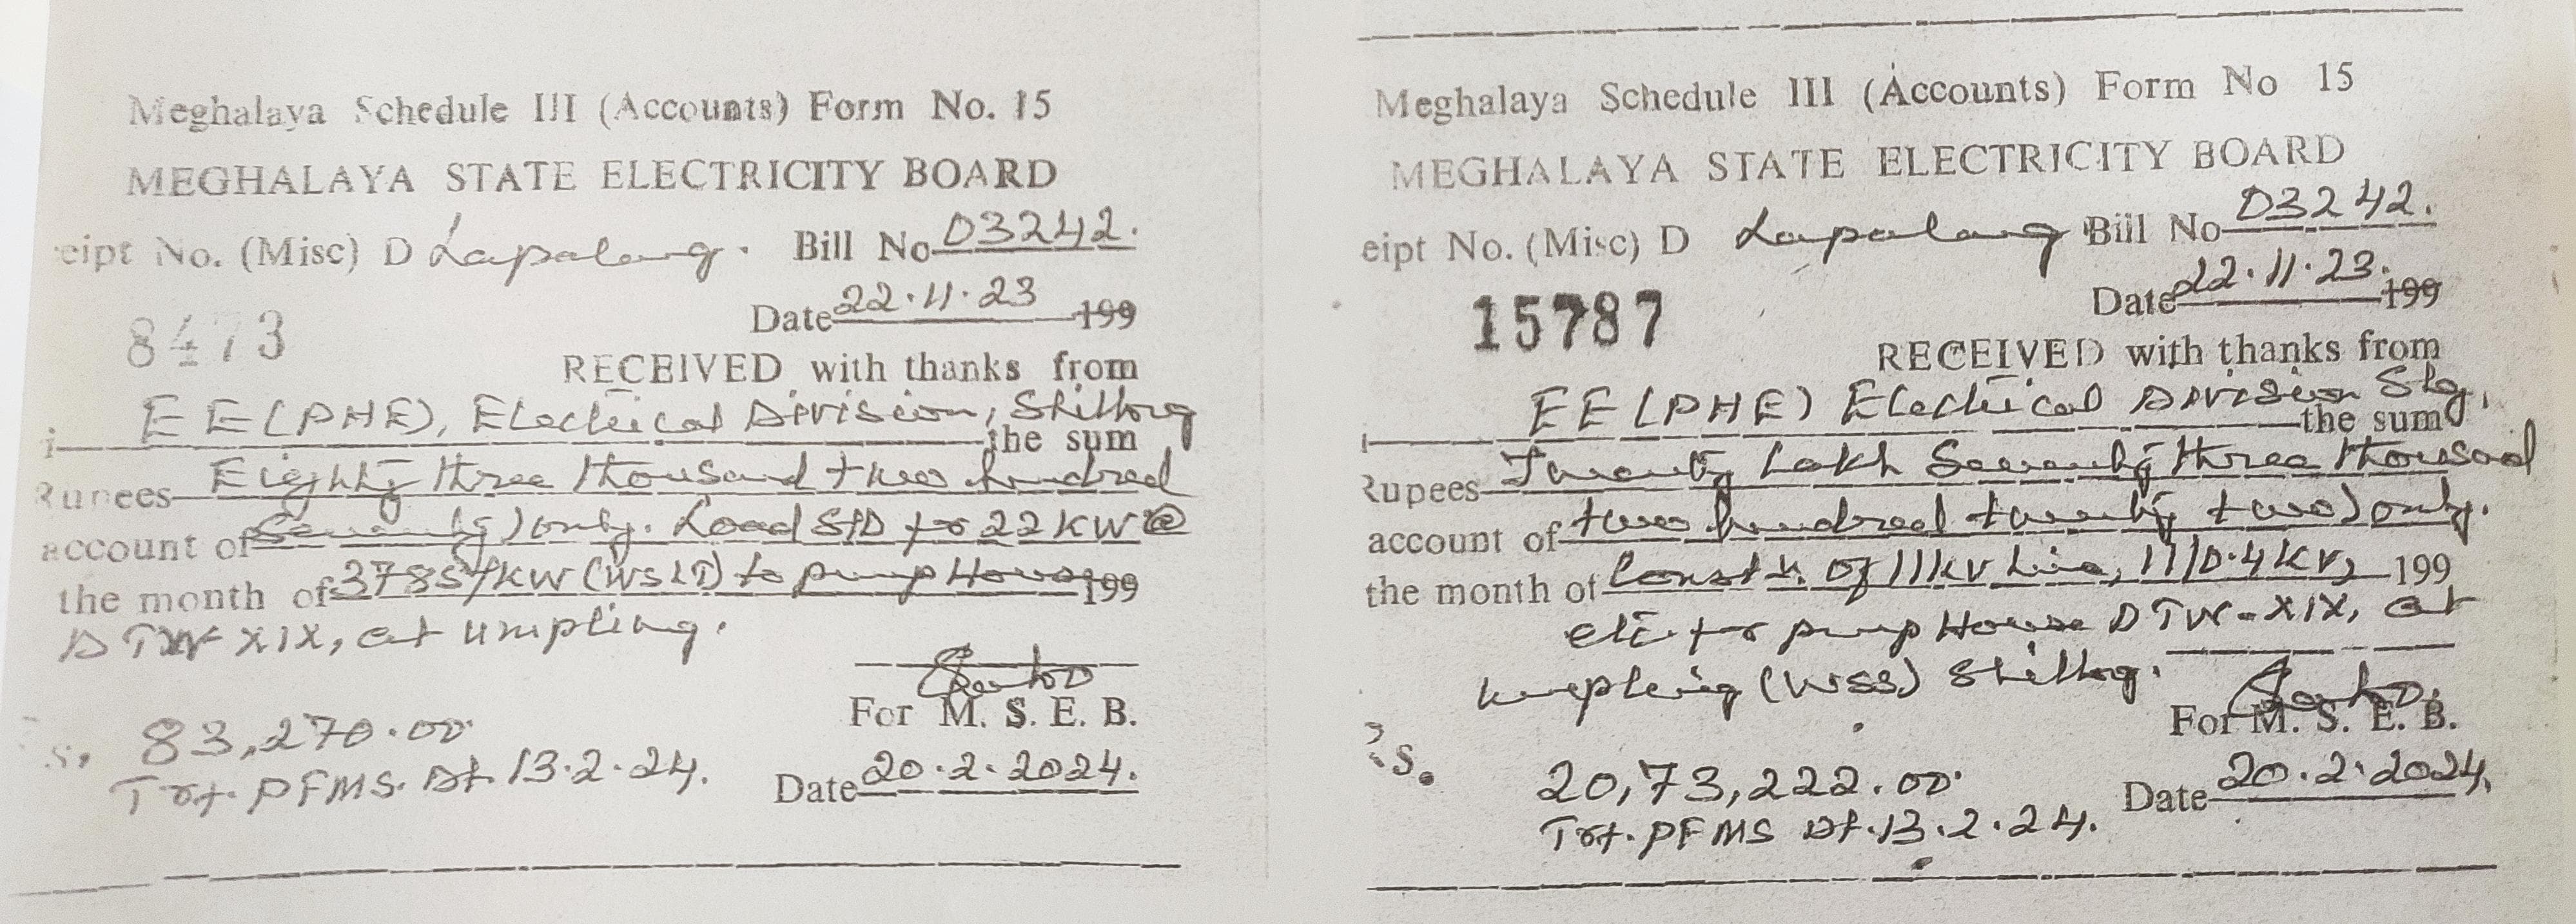 Meghalaya Schedule III (Accounts) Form No. 15
MEGHALAYA STATE ELECTRICITY BOARD
eipt No. (Misc) D Lapalang. Bill No D3242.
Date 22.11.23 199
8473
RECEIVED with thanks from
EE(PHE), Electrical Division, Shillong
the sum
Rupees Eighty three thousand two hundred
account of Seventy) only. Load S/D for 22 KW @
the month of 3785/KW (WSLT) to pump House 199
DTW-XIX, at Umpling.
For M. S. E. B.
s. 83,270.00
Trf. PFMS. Dt. 13.2.24.
Date 20.2.2024.
Meghalaya Schedule III (Accounts) Form No 15
MEGHALAYA STATE ELECTRICITY BOARD
eipt No. (Misc) D Lapalang Bill No D3242.
Date 22.11.23. 199
15787
RECEIVED with thanks from
EE(PHE) Electrical Division Slg,
the sum
Rupees Twenty Lakh Seventy three thousand
account of two hundred twenty two) only.
the month of Constn. of 11kv Line, 11/0.4 KV, 199
etc for pump House DTW-XIX, at
Umpling (WSS) Shillong.
For M. S. E. B.
Rs. 20,73,222.00
Trf. PFMS Dt. 13.2.24.
Date 20.2.2024.